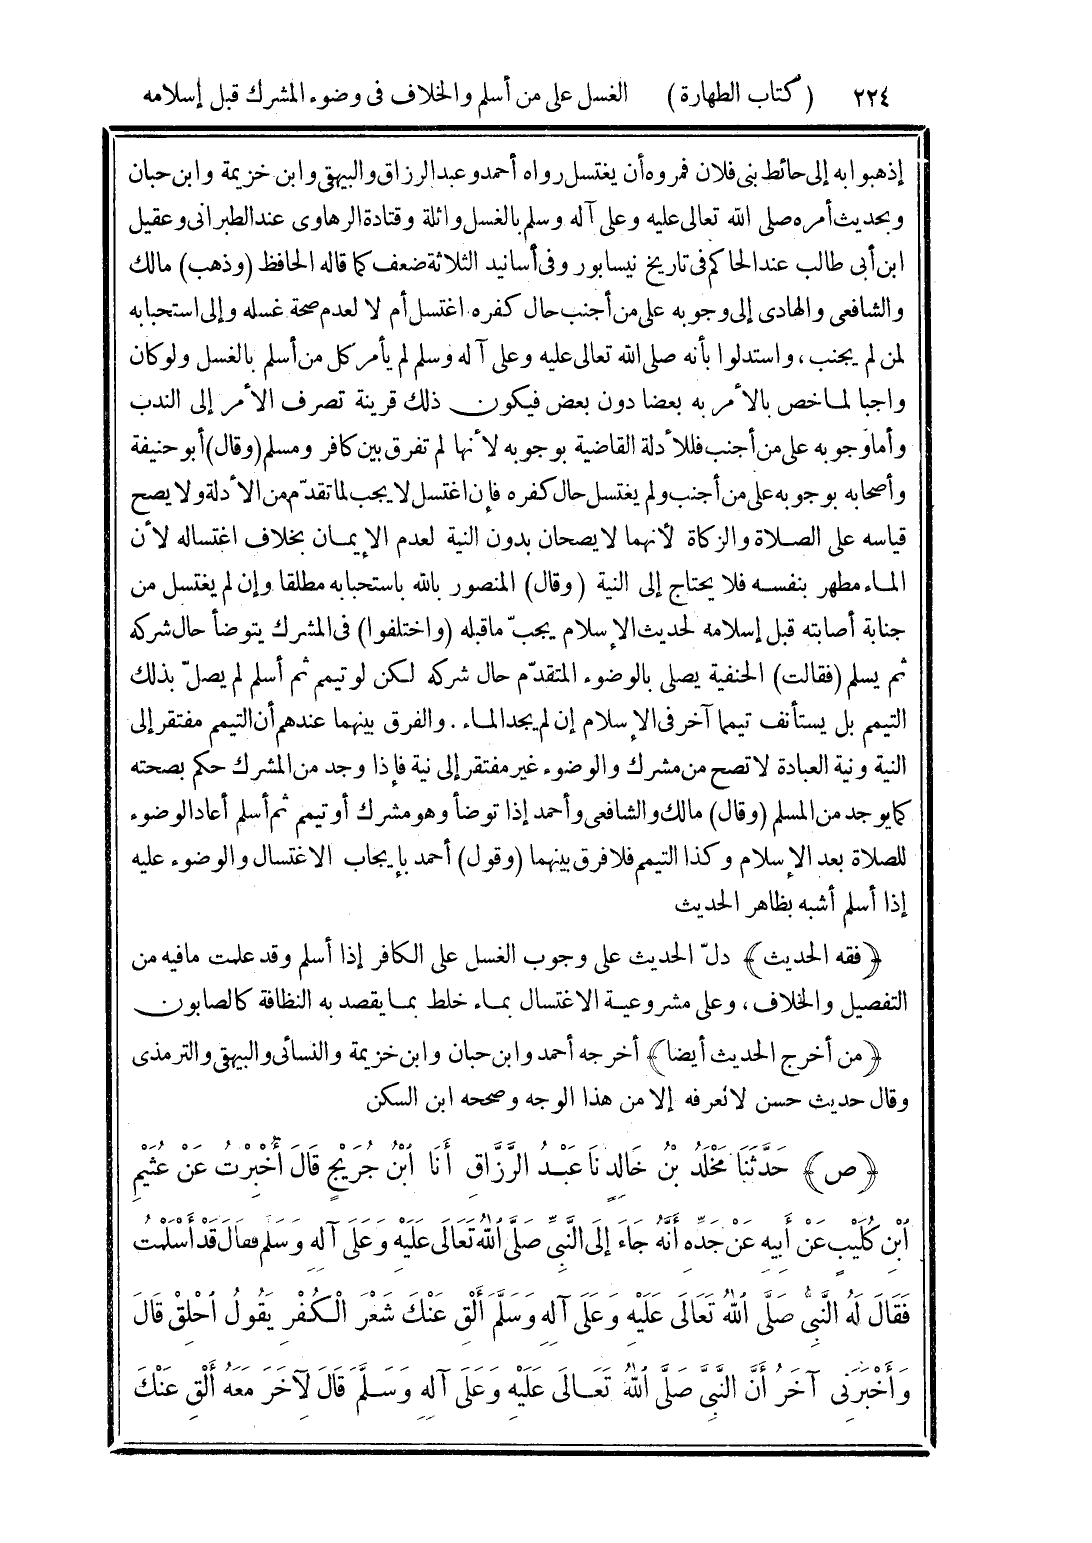 ٢٢٤ (كتاب الطهارة) الغسل على من أسلم والخلاف فى وضوء المشرك قبل إسلامه
إذهبوا به إلى حائط بنى فلان فمروه أن يغتسل رواه أحمد وعبد الرزاق والبيهقى وابن خزيمة وابن حبان
وبحديث أمره صلى الله تعالى عليه وعلى آله وسلم بالغسل واثلة وقتادة الرهاوى عند الطبرانى وعقيل
ابن أبى طالب عند الحاكم فى تاريخ نيسابور وفى أسانيد الثلاثة ضعف كما قاله الحافظ (وذهب) مالك
والشافعى والهادى إلى وجوبه على من أجنب حال كفره اغتسل أم لا لعدم صحة غسله وإلى استحبابه
لمن لم يجنب، واستدلوا بأنه صلى الله تعالى عليه وعلى آله وسلم لم يأمر كل من أسلم بالغسل ولو كان
واجبا لما خص بالأمر به بعضا دون بعض فيكون ذلك قرينة تصرف الأمر إلى الندب
وأما وجوبه على من أجنب فللأدلة القاضية بوجوبه لأنها لم تفرق بين كافر ومسلم (وقال) أبو حنيفة
وأصحابه بوجوبه على من أجنب ولم يغتسل حال كفره فإن اغتسل لا يجب لما تقدّم من الأدلة ولا يصح
قياسه على الصلاة والزكاة لأنهما لا يصحان بدون النية لعدم الإيمان بخلاف اغتساله لأن
الماء مطهر بنفسه فلا يحتاج إلى النية (وقال) المنصور بالله باستحبابه مطلقا وإن لم يغتسل من
جنابة أصابته قبل إسلامه لحديث الإسلام يجبّ ما قبله (واختلفوا) فى المشرك يتوضأ حال شركه
ثم يسلم (فقالت) الحنفية يصلى بالوضوء المتقدّم حال شركه لكن لو تيمم ثم أسلم لم يصلّ بذلك
التيمم بل يستأنف تيمما آخر فى الإسلام إن لم يجد الماء. والفرق بينهما عندهم أن التيمم مفتقر إلى
النية ونية العبادة لا تصح من مشرك والوضوء غير مفتقر إلى نية فإذا وجد من المشرك حكم بصحته
كما يوجد من المسلم (وقال) مالك والشافعى وأحمد إذا توضأ وهو مشرك أو تيمم ثم أسلم أعاد الوضوء
للصلاة بعد الإسلام وكذا التيمم فلا فرق بينهما (وقول) أحمد بإيجاب الاغتسال والوضوء عليه
إذا أسلم أشبه بظاهر الحديث
﴿فقه الحديث﴾ دلّ الحديث على وجوب الغسل على الكافر إذا أسلم وقد علمت ما فيه من
التفصيل والخلاف، وعلى مشروعية الاغتسال بماء خلط بما يقصد به النظافة كالصابون
﴿من أخرج الحديث أيضا﴾ أخرجه أحمد وابن حبان وابن خزيمة والنسائى والبيهقى والترمذى
وقال حديث حسن لا نعرفه إلا من هذا الوجه وصححه ابن السكن
﴿ص﴾ حَدَّثَنَا مَخْلَدُ بْنُ خَالِدٍ نَا عَبْدُ الرَّزَّاقِ أَنَا ابْنُ جُرَيْجٍ قَالَ أُخْبِرْتُ عَنْ عُثَيْمِ
ابْنِ كُلَيْبٍ عَنْ أَبِيهِ عَنْ جَدِّهِ أَنَّهُ جَاءَ إِلَى النَّبِىِّ صَلَّى اللهُ تَعَالَى عَلَيْهِ وَعَلَى آلِهِ وَسَلَّمَ فَقَالَ قَدْ أَسْلَمْتُ
فَقَالَ لَهُ النَّبِىُّ صَلَّى اللهُ تَعَالَى عَلَيْهِ وَعَلَى آلِهِ وَسَلَّمَ أَلْقِ عَنْكَ شَعْرَ الْكُفْرِ يَقُولُ احْلِقْ قَالَ
وَأَخْبَرَنِى آخَرُ أَنَّ النَّبِىَّ صَلَّى اللهُ تَعَالَى عَلَيْهِ وَعَلَى آلِهِ وَسَلَّمَ قَالَ لِآخَرَ مَعَهُ أَلْقِ عَنْكَ